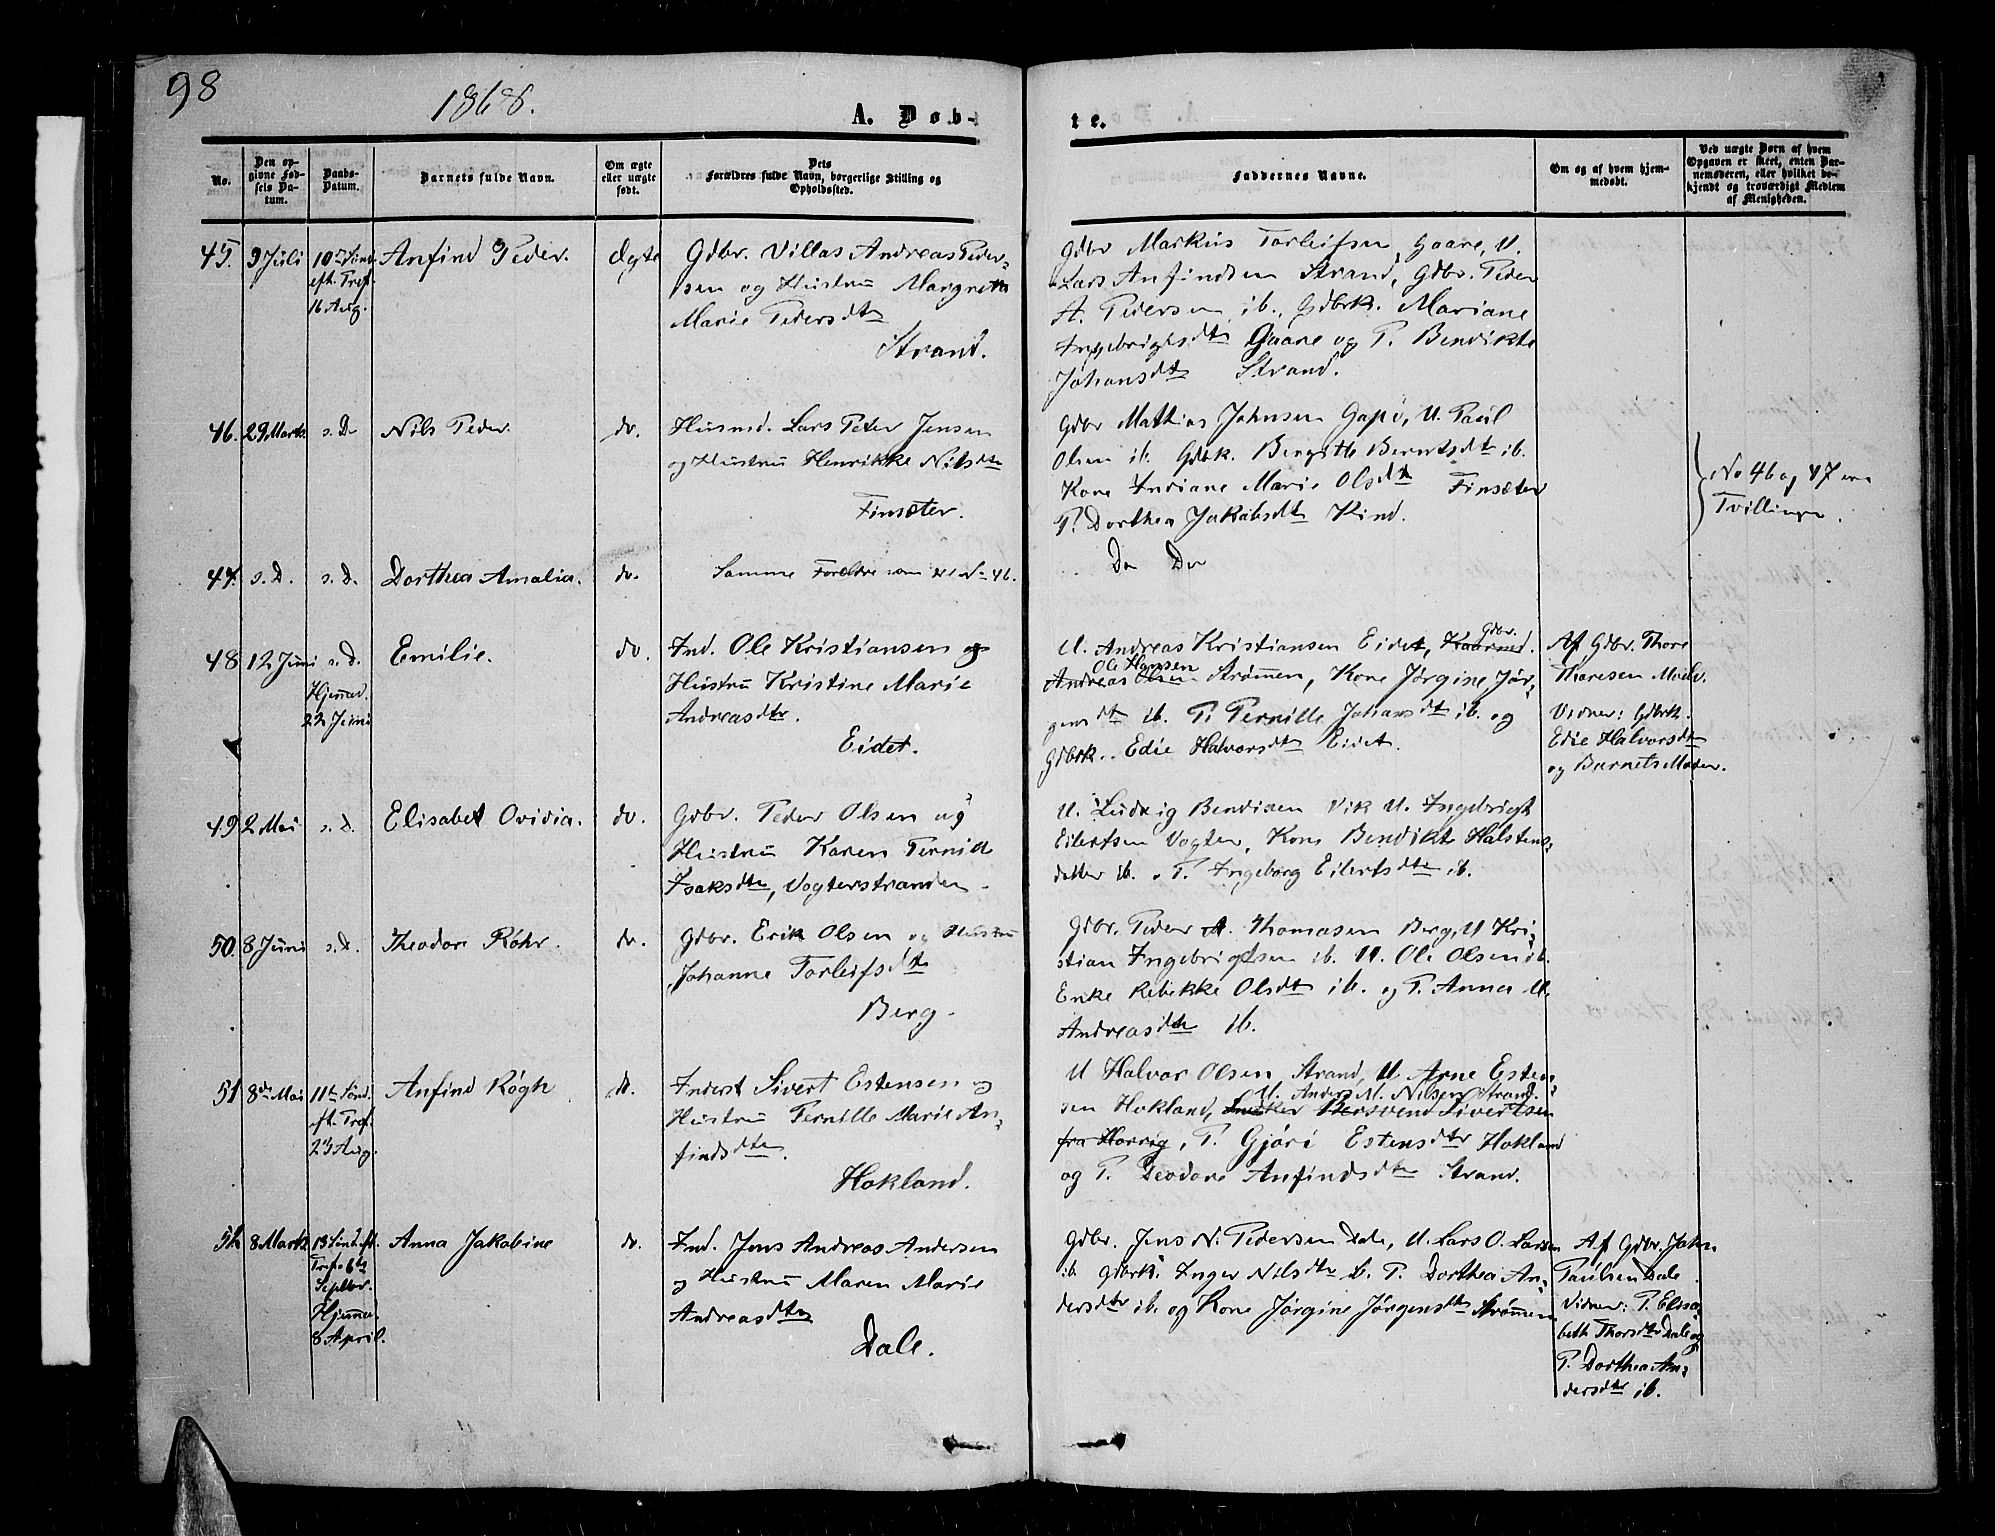 98
1868.
A. Døb-
te.
No.
Den op-
givne Fød-
sels Da-
tum.
Daabs-
Datum.
Barnets fulde Navn.
Om ægte
eller uægte
født.
Dets
Forældres fulde Navn, borgerlige Stilling og
Opholdssted.
Faddernes Navne.
Om og af hvem hjem-
medøbt.
Ved uægte Børn af hvem
Opgaven er skeet, enten Bar-
nemoderen, eller hvilket be-
kjendt og troværdigt Medlem
af Menigheden.
45. 9 Juli 10de Sønd. Anfind Peder. Ægte
eft. Tref.
16 Aug.
Gdbr. Villas Andreas Peder-
sen og Hustru Margretha
Marie Pedersdtr
Strand.
Gdbr Markus Torleifsen Gaare, U.
Lars Anfindsen Strand, Gdbr. Peder
A. Pedersen ib., Gdbrk. Mariane
Ingebrigtsdtr Gaare og P. Bendikte
Johansdtr Strand.
46. 29 Marts s. D Nils Peder do.
Husmd. Lars Peter Jensen
og Hustru Henrikke Nilsdtr
Finsæter.
Gdbr Mathias Johnsen Gapø, U. Paul
Olsen ib. Gdbk. Bergitte Berntsdtr ib.
Kone Indiane Marie Olsdtr Finsæter
P. Dorthea Jakobsdtr Kind.
No 46 og 47 ere
Tvillinger.
47. s. D. s. d. Dorthea Amalia. do.
Samme Forældre som No 46.
Do Do
48 12 Juni s. d. Emilie. do.
Hjemmed.
22 Juni
Ind. Ole Kristiansen og
Hustru Kristine Marie
Andreasdtr.
Eidet.
U. Andreas Kristiansen Eidet, Kaarmd. Gdbr.
Andreas Olsen Ole Hansen Strømmen, Kone Jørgine Jør-
gensdtr ib. P. Pernille Johansdtr ib. og
Gdbrk. Edie Halvorsdtr Eidet.
Af Gdbr. Thore
Thoresen Moelv.
Vidner: Gdbrk.
Edie Halvorsdtr
og Barnets Moder.
49 2 Mai s. d. Elisabet Ovidia. do.
Gdbr. Peder Olsen og
Hustru Karen Pernille
Isaksdtr, Vogterstranden.
U. Ludvig Bendixen Vik U. Ingebrigt
Eilertsen Vogter, Kone Bendikte Halstens-
datter ib. P. Ingeborg Eilertsdtr ib.
50. 8 Juni s. d. Theodor Røhr. do.
Gdbr. Erik Olsen og Hustru
Johanne Torleifsdtr
Berg.
Gdbr. Peder A. Thomasen Berg, U Kri-
stian Ingebrigtsen ib. U. Ole Olsen ib.
Enke Rebekke Olsdtr ib. og P. Anna M.
Andreasdtr ib.
51 8de Mai 11te Sønd. Anfind Røgh do.
eft. Tref.
23 Aug.
Inderst Sivert Estensen og
Hustru Pernille Marie An-
findsdtr.
Hokland.
U Halvor Olsen Strand, U. Arne Esten-
U. Anders M. Nilsen Strand.
sen Hokland, Bersvend Sivertsen
fra Horvig, P. Gjøri Estensdtr Hokland
og P. Teodore Anfindsdtr Strand.
52 8 Marts 13 Sønd. eft. Anna Jakobine do.
Tref. 6te
Septbr.
Hjemmed.
8 April.
Ind. Jens Andreas Andersen
og Hustru Maren Marie
Andreasdtr
Dale.
Gdbr. Jens N. Pedersen Dale, U. Lars O. Larsen
ib. Gdbrk. Inger Nilsdtr ib. P. Dorthea An-
dersdtr ib. og Kone Jørgine Jørgensdtr Strømmen
Af Gdbr. John
Paulsen Dale.
Vidner: P. Elisa-
beth Thorsdtr Dale og
P. Dorthea An-
dersdtr ib.